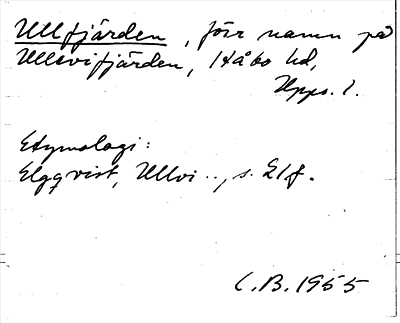 Ullfjärden, förr namn på
Ullevifjärden, Håbo hd,
Upps. l.
Etymologi:
Elgqvist, Ullvi.., s. 21f.
C.B. 1955